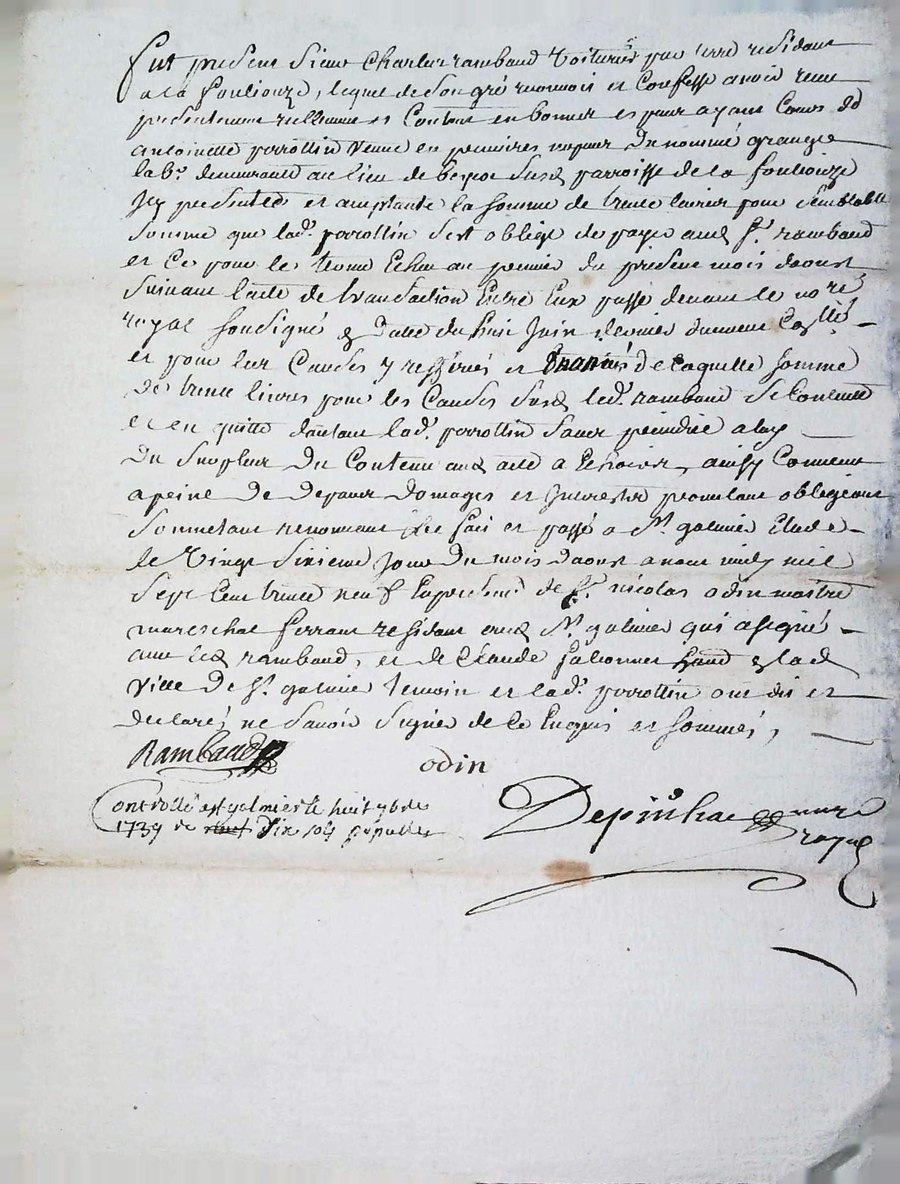 fut present Sieur Charles rambaud Voiturier par terre residant
a la fouliouze, lequel de Son gré reconnoit et Confesse avoir receu
presentement reellement et Contant en bonnes especes ayant Cours de
antoinette perrottin veuve en premieres nopces du nommé grangie
lab.r demeurante au lieu de parroisse de la fouliouze
Icy presente et acceptante la Somme de trente livres pour Semblable
Somme que lad. perrottin S'est obligé de payer aud S.r rambaud
et Ce pour le terme Echeu au premier du present mois daoust
Suivant l'acte de transaction Entre Eux passé devant le no.re
royal Soussigné datte du huit Juin dernier
et pour les Causes y refferées et de laquelle Somme
de trente livres pour les Causes Susd led. rambaud Se Contente
et en quitte d'autant lad. perrottin Sans prejudice a luy
Du Surplus Du Contenu aud acte a Echeoir, ainsy Convenu
a peine de Depens Domages et Interests promettant obligeant
Soumettant renonnant &c fait et passé a S.t galmier Etude
le Vingt Sixieme Jour Du mois Daoust avant midy mil
Sept Cent trente neuf En presence de S.r nicolas odin maitre
mareschal ferrant residant aud S.t galmier qui a signé
avec led rambaud, et de Claude lad
Ville De S.t galmier temoin et lad. perrottin ont dit et
declaré ne Savoir Signer de Ce Enquis et Sommés,
Rambaud
odin
Controllé a St galmier le huit 7bre
1739 Dix Sols
Depinhac no.re
royal